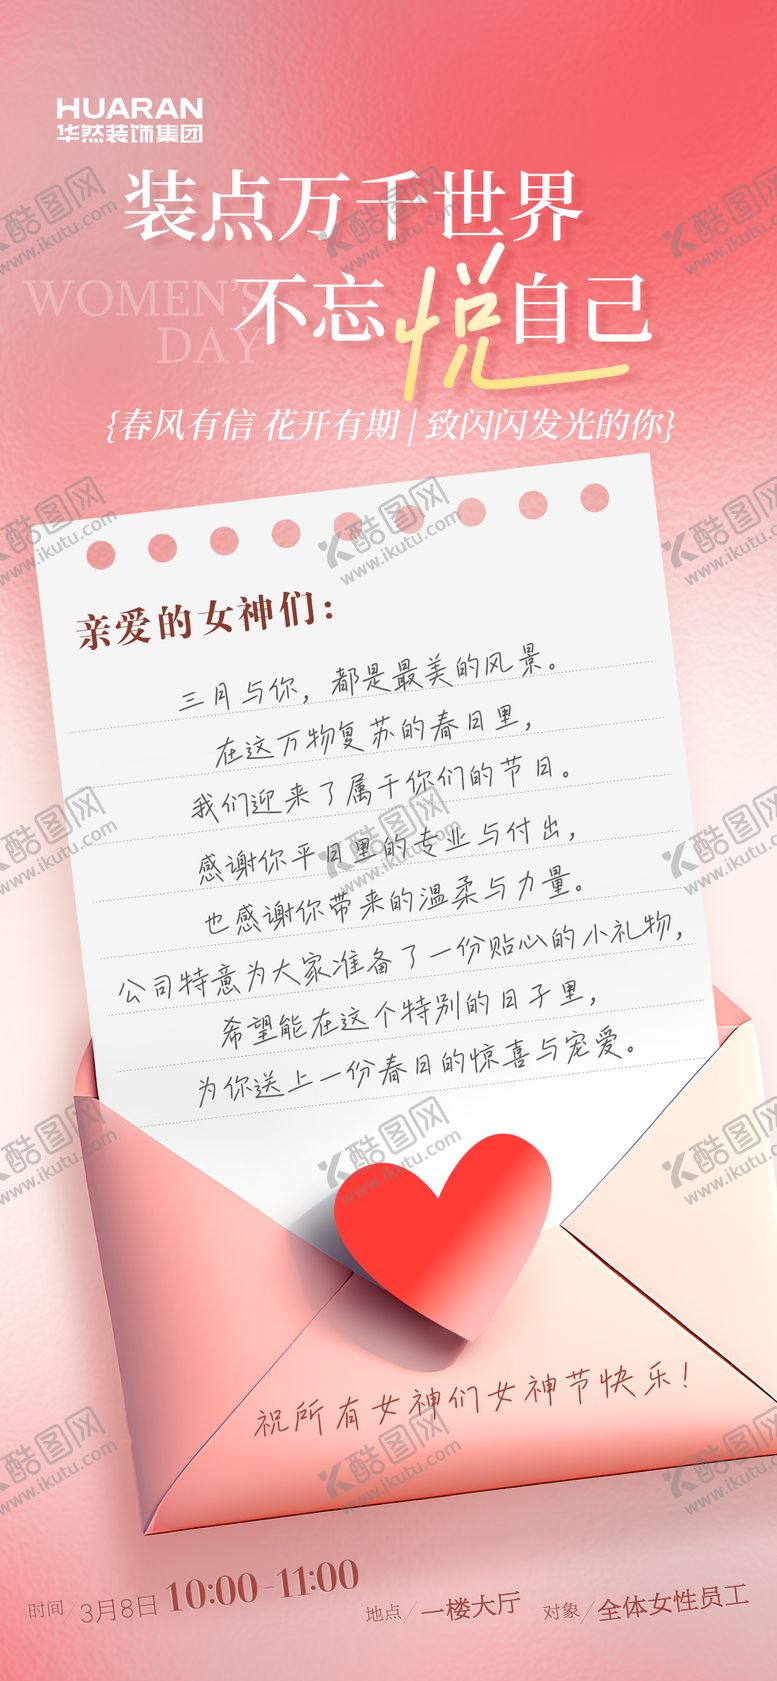 HUARAN
华然装饰集团
装点万千世界
WOMEN'S
DAY
不忘悦自己
{春风有信 花开有期 | 致闪闪发光的你}
亲爱的女神们：
三月与你，都是最美的风景。
在这万物复苏的春日里，
我们迎来了属于你们的节日。
感谢你平日里的专业与付出，
也感谢你带来的温柔与力量。
公司特意为大家准备了一份贴心的小礼物，
希望能在这个特别的日子里，
为你送上一份春日的惊喜与宠爱。
祝所有女神们女神节快乐！
时间/3月8日 10:00-11:00 地点/一楼大厅 对象/全体女性员工
酷图网
www.ikutu.com